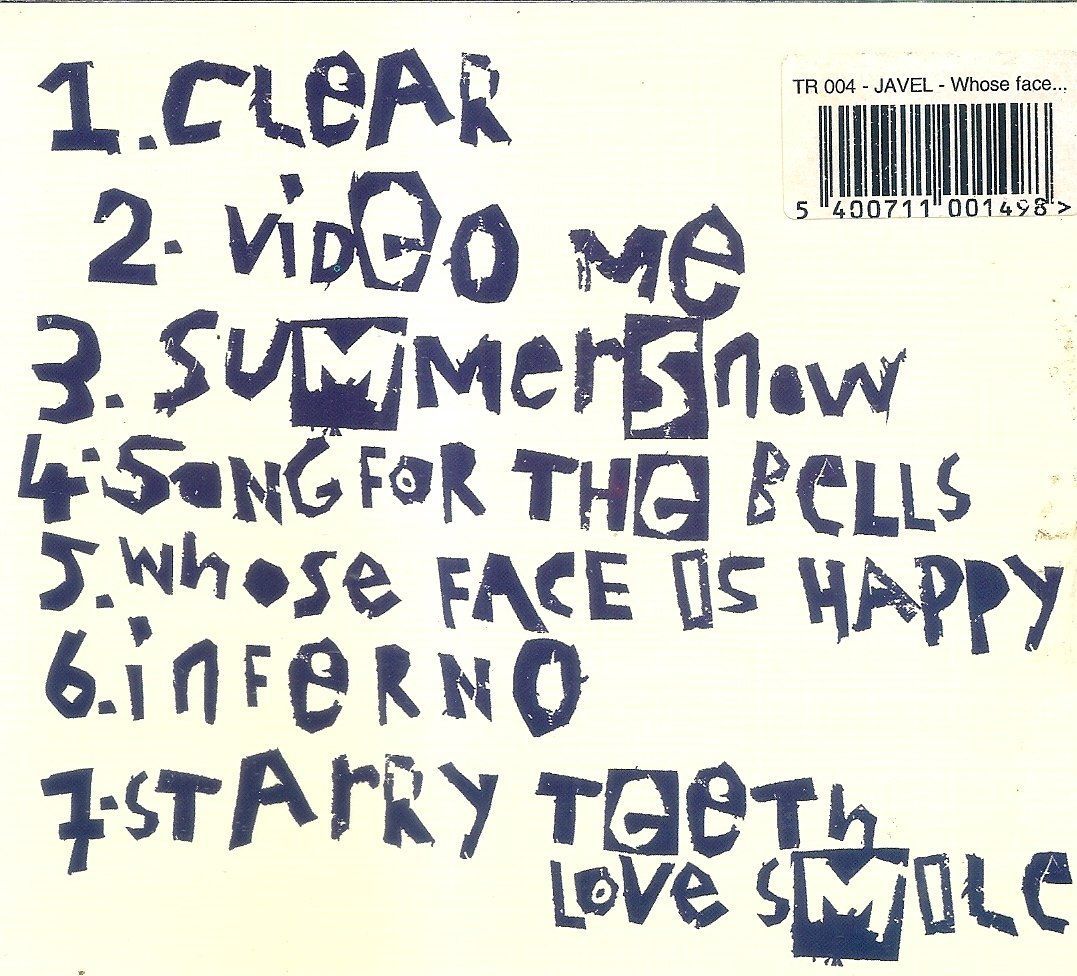 1. CLeAR
TR 004 - JAVEL - Whose face...
5 400711 001498 >
2. viDeO Me
3. SUMMerSnow
4. SoNG FOR THe BeLLS
5. whose FACE IS HAPPy
6. inFeRNO
7. STArRy TeeTh
LOVe SMILe